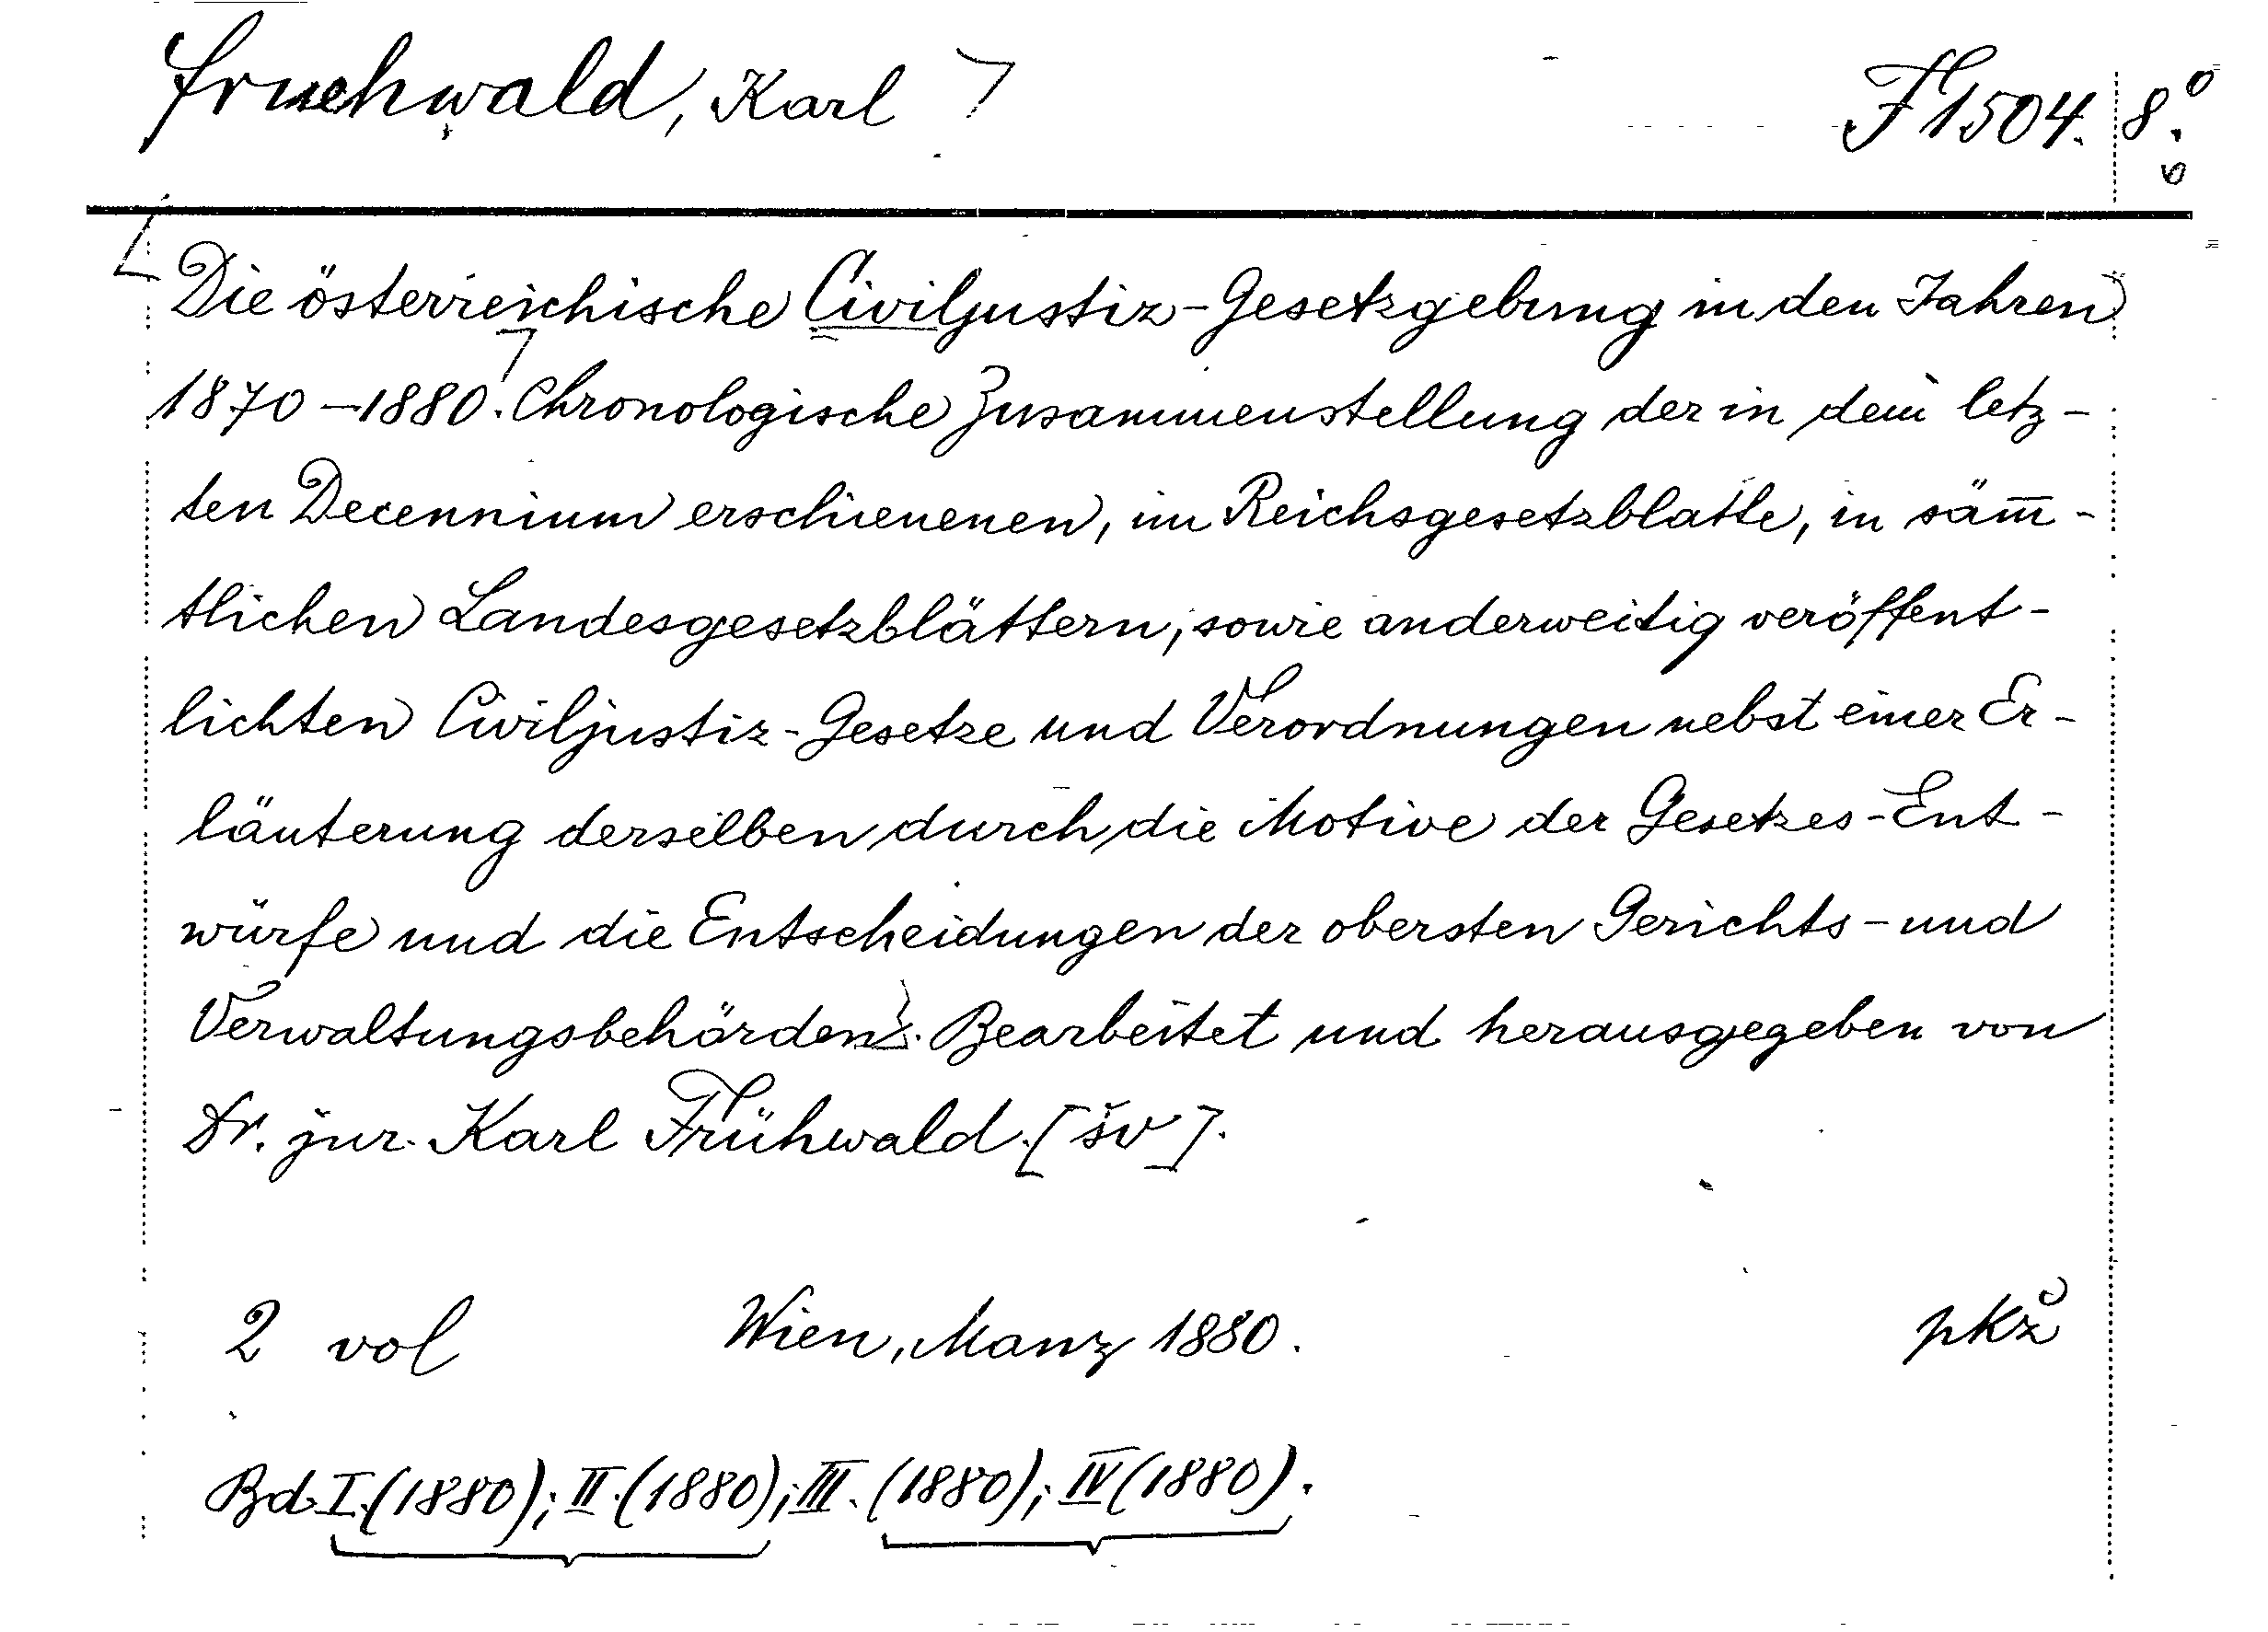 Fruehwald, Karl F 1504. 8⁰.
Die österreichische Civiljustiz-Gesetzgebung in den Jahren
1870–1880. Chronologische Zusammenstellung der in dem letz-
ten Decennium erschienenen, im Reichsgesetzblatte, in säm̅-
tlichen Landesgesetzblättern, sowie anderweitig veröffent-
lichten Civiljustiz-Gesetze und Verordnungen nebst einer Er-
läuterung derselben durch die Motive der Gesetzes-Ent-
würfe und die Entscheidungen der obersten Gerichts- und
Verwaltungsbehörden. Bearbeitet und herausgegeben von
Dr. jur. Karl Frühwald. [šv].
2 vol Wien, Manz 1880. pkž
Bd. I. (1880); II. (1880); III. (1880); IV (1880).